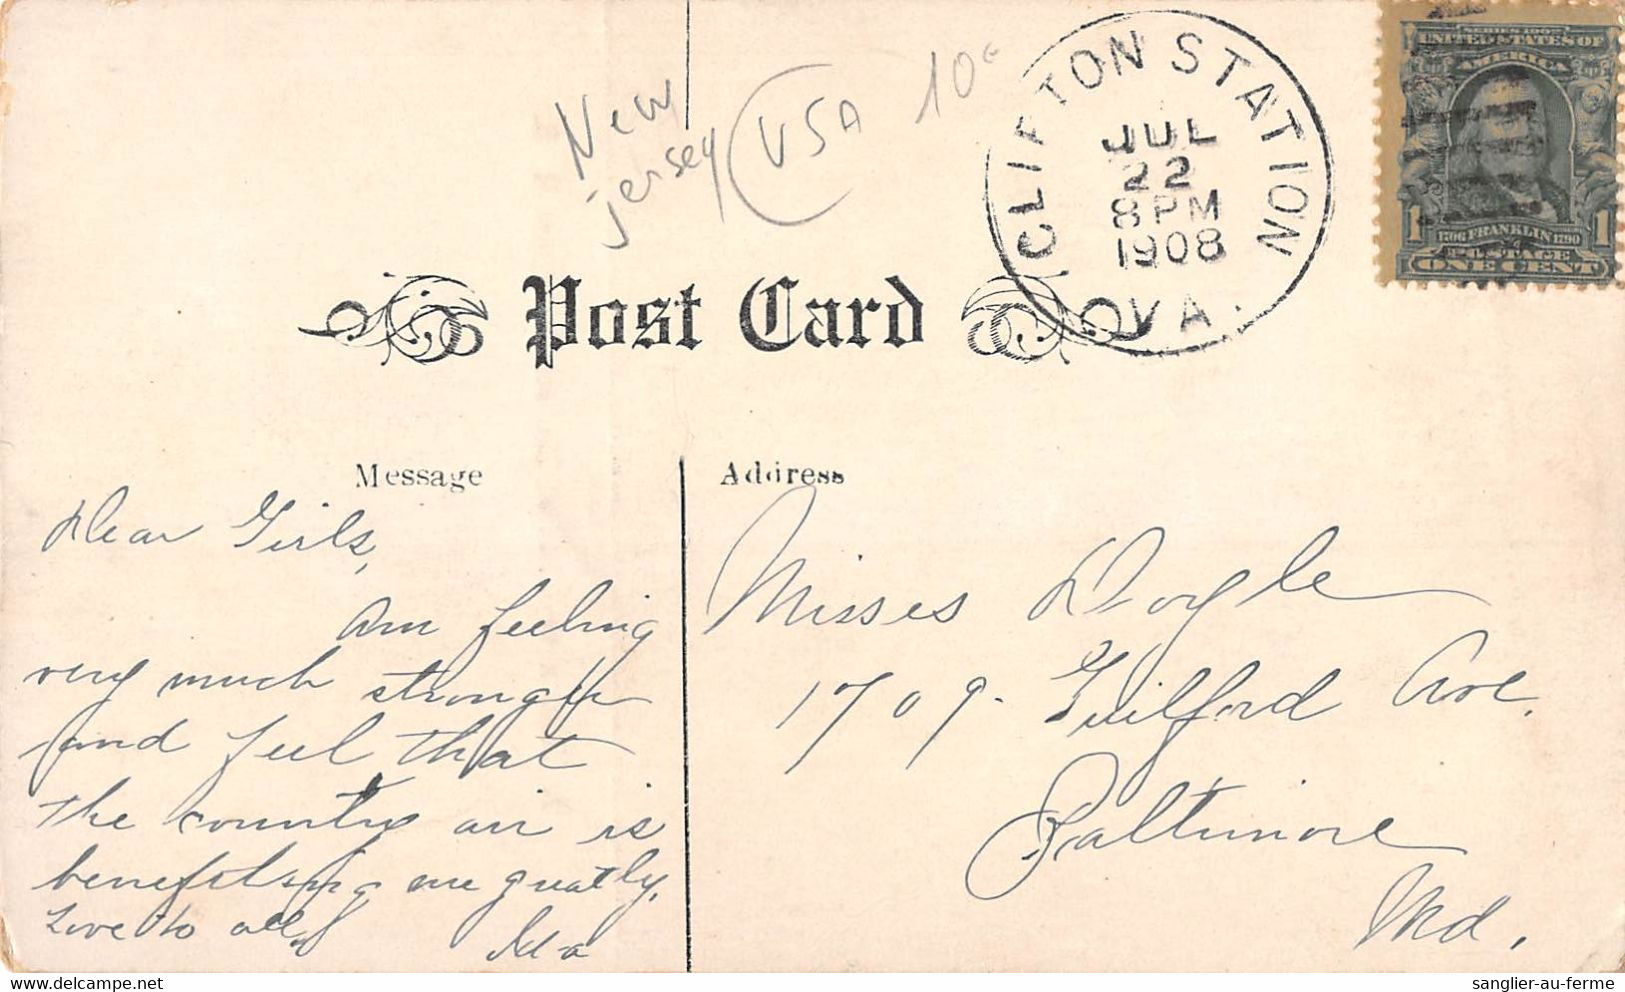 New
jersey
USA
10€
CLIFTON STATION
JUL
22
8 PM
1908
VA.
SERIES 1902
UNITED STATES OF
AMERICA
1
1706 FRANKLIN 1790
1
POSTAGE
ONE CENT
Post Card
Message
Address
Dear Girls,
Am feeling
very much stronger
and feel that
the country air is
benefitting me greatly.
Love to all,
Ida
Misses Doyle
1709. Guilford Ave.
Baltimore
Md.
sanglier-au-ferme